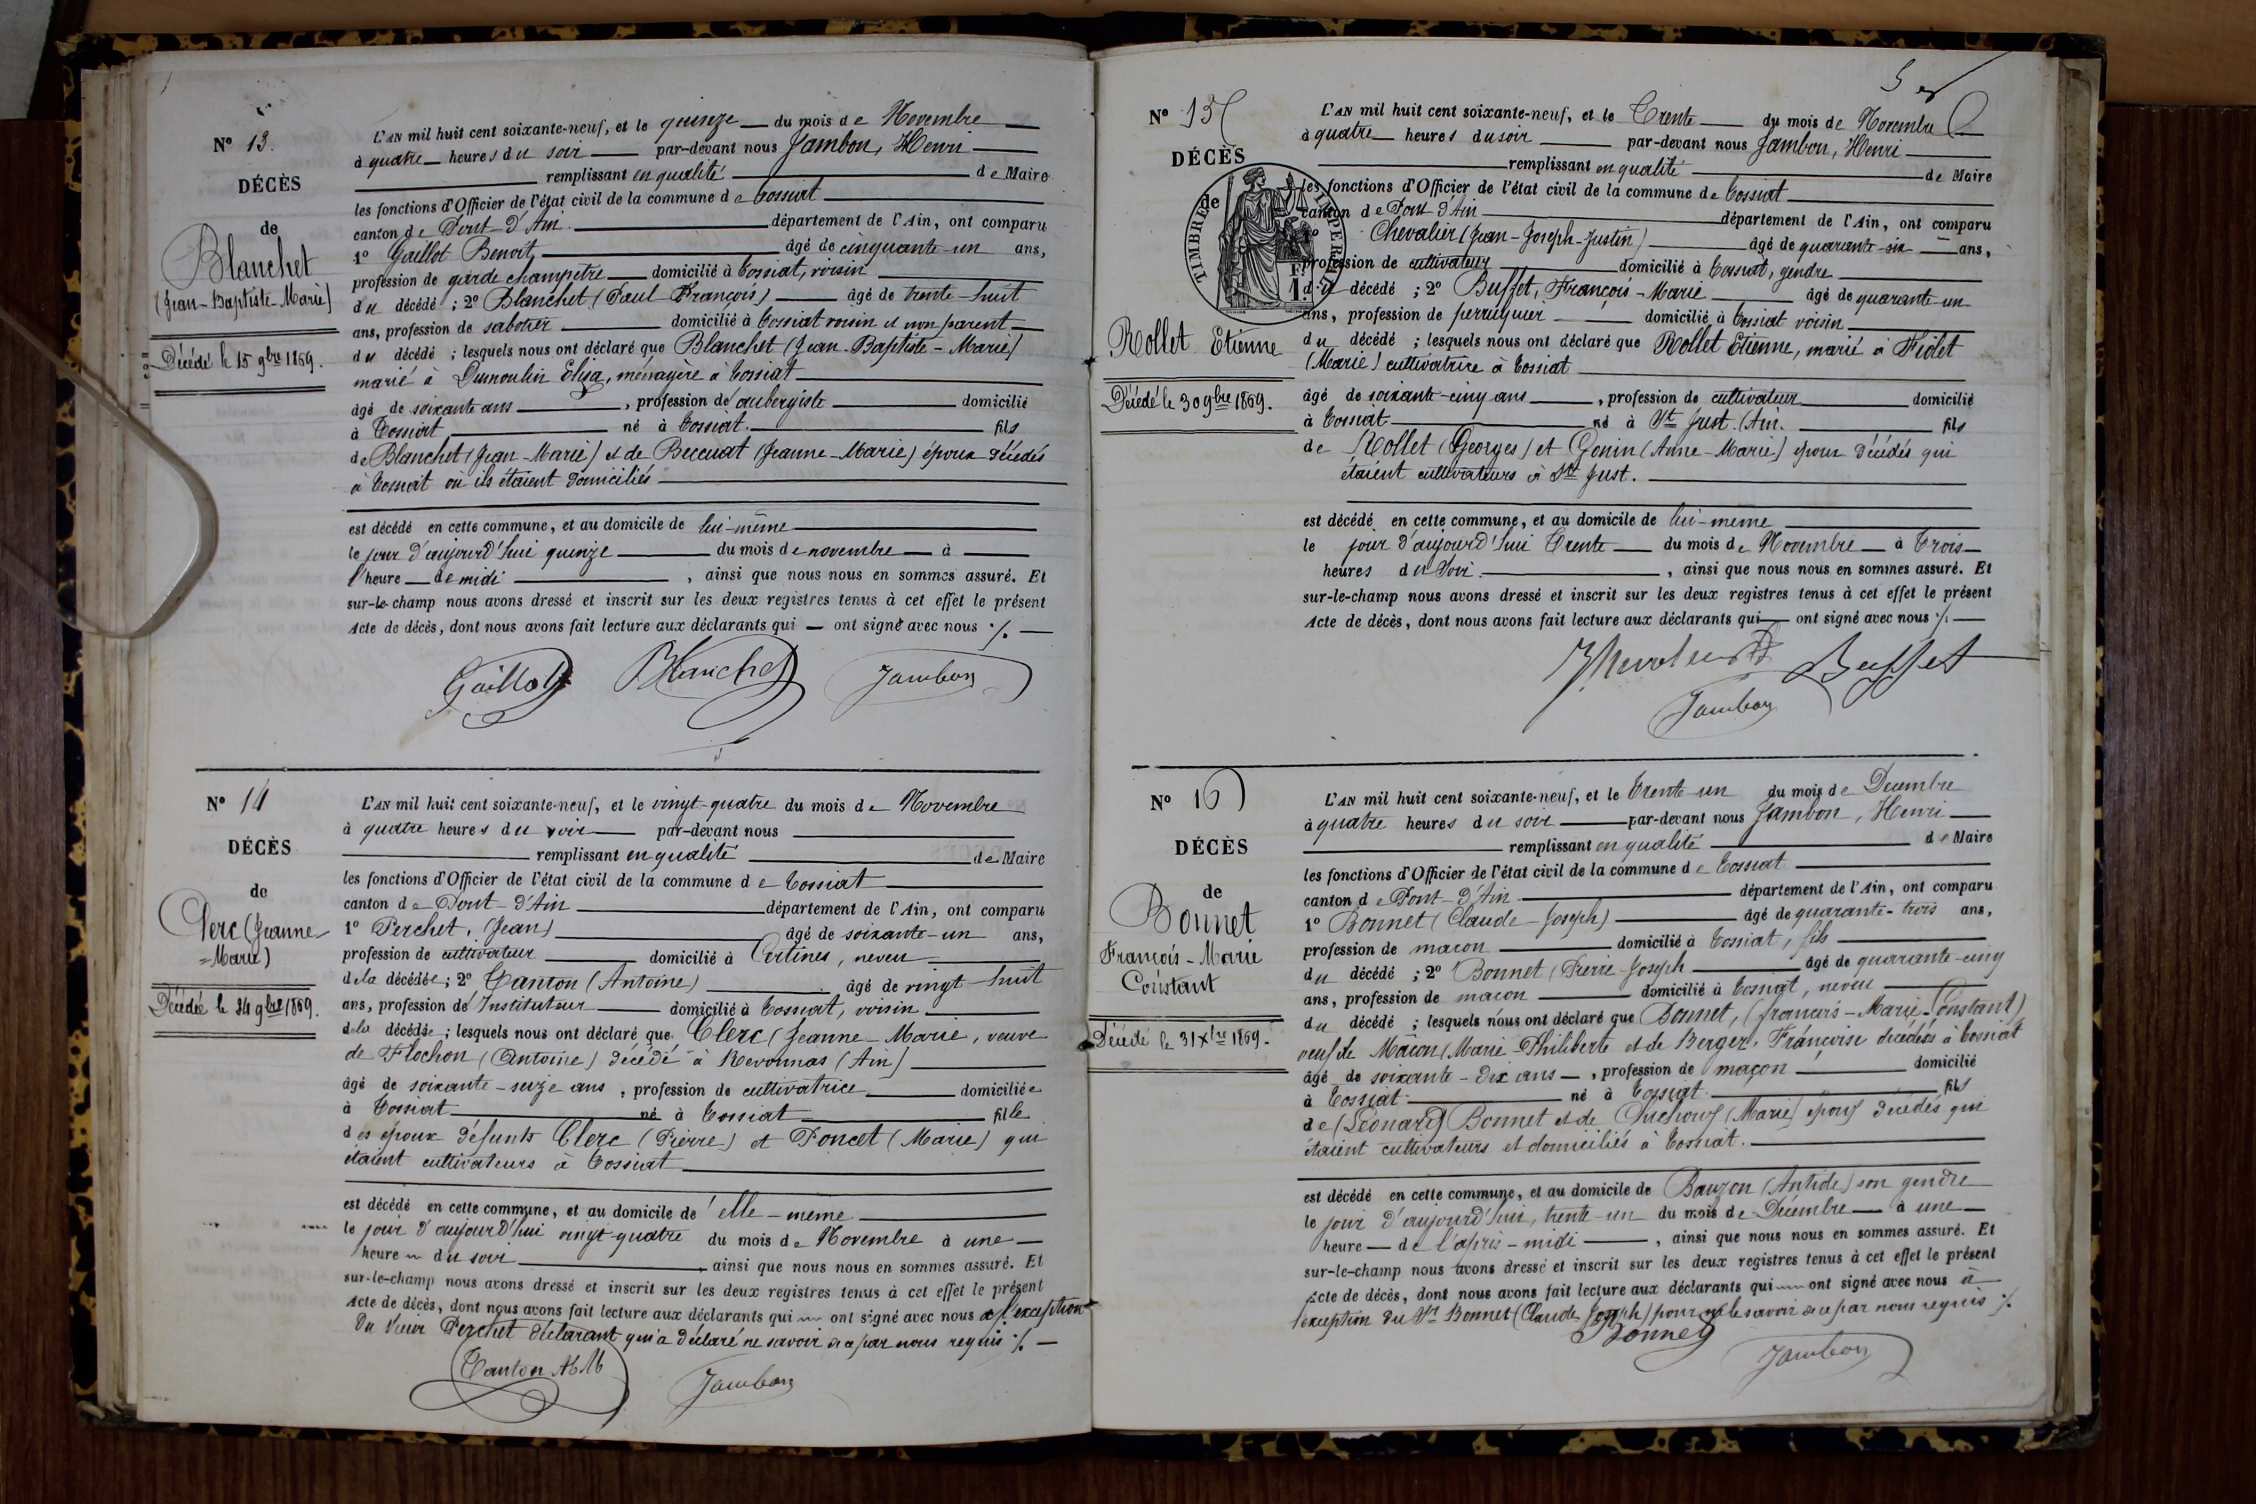 N° 13.
DÉCÈS
de
Blanchet
(Jean-Baptiste-Marie)
Décédé le 15 9bre 1869.
L'AN mil huit cent soixante-neuf, et le quinze du mois de Novembre
à quatre heures du soir par-devant nous Jambon, Henri
remplissant en qualité de Maire
les fonctions d'Officier de l'état civil de la commune de Tossiat
canton de Pont-d'Ain département de l'Ain, ont comparu
1° Gaillot Benoit, âgé de cinquante-un ans,
profession de garde champêtre domicilié à Tossiat, voisin
du décédé ; 2° Blanchet (Paul François) âgé de trente-huit
ans, profession de sabotier domicilié à Tossiat voisin et non parent
du décédé ; lesquels nous ont déclaré que Blanchet (Jean-Baptiste-Marie)
marié à Dumoulin Elisa, ménagère à Tossiat
âgé de soixante ans, profession de aubergiste domicilié
à Tossiat né à Tossiat. fils
de Blanchet (Jean-Marie) et de Beccuat (Jeanne-Marie) époux décédés
à Tossiat où ils étaient domiciliés
est décédé en cette commune, et au domicile de lui-même
le jour d'aujourd'hui quinze du mois de novembre à
l'heure de midi, ainsi que nous nous en sommes assuré. Et
sur-le-champ nous avons dressé et inscrit sur les deux registres tenus à cet effet le présent
Acte de décès, dont nous avons fait lecture aux déclarants qui ont signé avec nous ./.
Gaillot Blanchet Jambon
N° 14
DÉCÈS
de
Clerc (Jeanne-
=Marie)
Décédée le 24 9bre 1869.
L'AN mil huit cent soixante-neuf, et le vingt-quatre du mois de Novembre
à quatre heures du soir par-devant nous
remplissant en qualité de Maire
les fonctions d'Officier de l'état civil de la commune de Tossiat
canton de Pont-d'Ain département de l'Ain, ont comparu
1° Perchet, (Jean) âgé de soixante-un ans,
profession de cultivateur domicilié à Certines, neveu
de la décédée ; 2° Canton (Antoine) âgé de vingt-huit
ans, profession de Instituteur domicilié à Tossiat, voisin
de la décédée ; lesquels nous ont déclaré que Clerc (Jeanne-Marie, veuve
de Flochon (Antoine) décédé à Revonnas (Ain)
âgé de soixante-seize ans, profession de cultivatrice domiciliée
à Tossiat né à Tossiat fille
des époux défunts Clerc (Pierre) et Poncet (Marie) qui
étaient cultivateurs à Tossiat
est décédé en cette commune, et au domicile de elle-même
le jour d'aujourd'hui vingt-quatre du mois de Novembre à une
heure du soir ainsi que nous nous en sommes assuré. Et
sur-le-champ nous avons dressé et inscrit sur les deux registres tenus à cet effet le présent
Acte de décès, dont nous avons fait lecture aux déclarants qui ont signé avec nous à l'exception
du sieur Perchet déclarant qui a déclaré ne savoir de ce par nous requis ./.
Canton Jambon
N° 15
DÉCÈS
de
TIMBRE IMPERIAL
1 F.
Rollet Etienne
Décédé le 30 9bre 1869.
L'AN mil huit cent soixante-neuf, et le Trente du mois de Novembre
à quatre heures du soir par-devant nous Jambon, Henri
remplissant en qualité de Maire
les fonctions d'Officier de l'état civil de la commune de Tossiat
canton de Pont-d'Ain département de l'Ain, ont comparu
1° Chevalier (Jean-Joseph-Justin) âgé de quarante-six ans,
profession de cultivateur domicilié à Tossiat, gendre
du décédé ; 2° Buffet, François-Marie âgé de quarante-un
ans, profession de perruquier domicilié à Tossiat voisin
du décédé ; lesquels nous ont déclaré que Rollet Etienne, marié à Fiolet
(Marie) cultivatrice à Tossiat
âgé de soixante-cinq ans, profession de cultivateur domicilié
à Tossiat né à St Just (Ain. fils
de Rollet (Georges) et Gonin (Anne-Marie) époux décédés qui
étaient cultivateurs à St Just.
est décédé en cette commune, et au domicile de lui-même
le jour d'aujourd'hui Trente du mois de Novembre à Trois
heures du Soir, ainsi que nous nous en sommes assuré. Et
sur-le-champ nous avons dressé et inscrit sur les deux registres tenus à cet effet le présent
Acte de décès, dont nous avons fait lecture aux déclarants qui ont signé avec nous ./.
Buffet
Jambon
N° 16
DÉCÈS
de
Bonnet
François-Marie
Constant
Décédé le 31 Xbre 1869.
L'AN mil huit cent soixante-neuf, et le Trente-un du mois de Décembre
à quatre heures du soir par-devant nous Jambon, Henri
remplissant en qualité de Maire
les fonctions d'Officier de l'état civil de la commune de Tossiat
canton de Pont-d'Ain département de l'Ain, ont comparu
1° Bonnet (Claude-Joseph) âgé de quarante-trois ans,
profession de maçon domicilié à Tossiat, fils
du décédé ; 2° Bonnet (Pierre-Joseph âgé de quarante-cinq
ans, profession de maçon domicilié à Tossiat, neveu
du décédé ; lesquels nous ont déclaré que Bonnet, (françois-Marie-Constant)
veuf de Maçon (Marie-Philiberte et de Berger, Françoise décédées à Tossiat
âgé de soixante-dix ans, profession de maçon domicilié
à Tossiat né à Tossiat fils
de (Léonard) Bonnet et de (Marie) époux décédés qui
étaient cultivateurs et domiciliés à Tossiat.
est décédé en cette commune, et au domicile de Bauzon (Antide) son gendre
le jour d'aujourd'hui, trente-un du mois de Décembre à une
heure de l'après-midi, ainsi que nous nous en sommes assuré. Et
sur-le-champ nous avons dressé et inscrit sur les deux registres tenus à cet effet le présent
Acte de décès, dont nous avons fait lecture aux déclarants qui ont signé avec nous à
l'exception du Sr Bonnet (Claude Joseph) pour ne le savoir de ce par nous requis ./.
Bonnet
Jambon